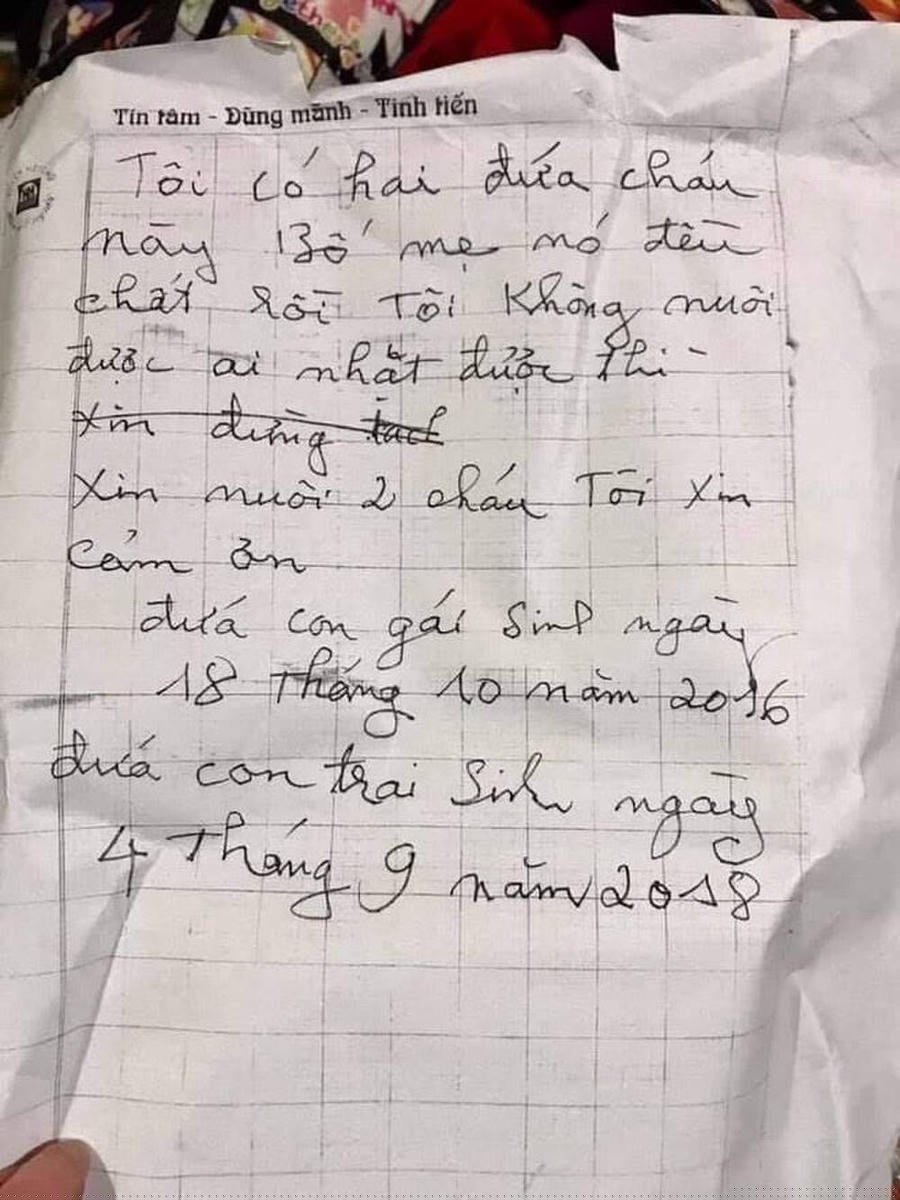 Tín tâm - Dũng mãnh - Tinh tiến
Tôi có hai đứa cháu
này Bố mẹ nó đều
chất rồi Tôi Không nuôi
được ai nhặt được thì
xin đừng tach
Xin nuôi 2 cháu Tôi xin
cảm ơn
đứa con gái sinh ngày
18 Tháng 10 năm 2016
đứa con trai Sinh ngày
4 Tháng 9 năm 2018